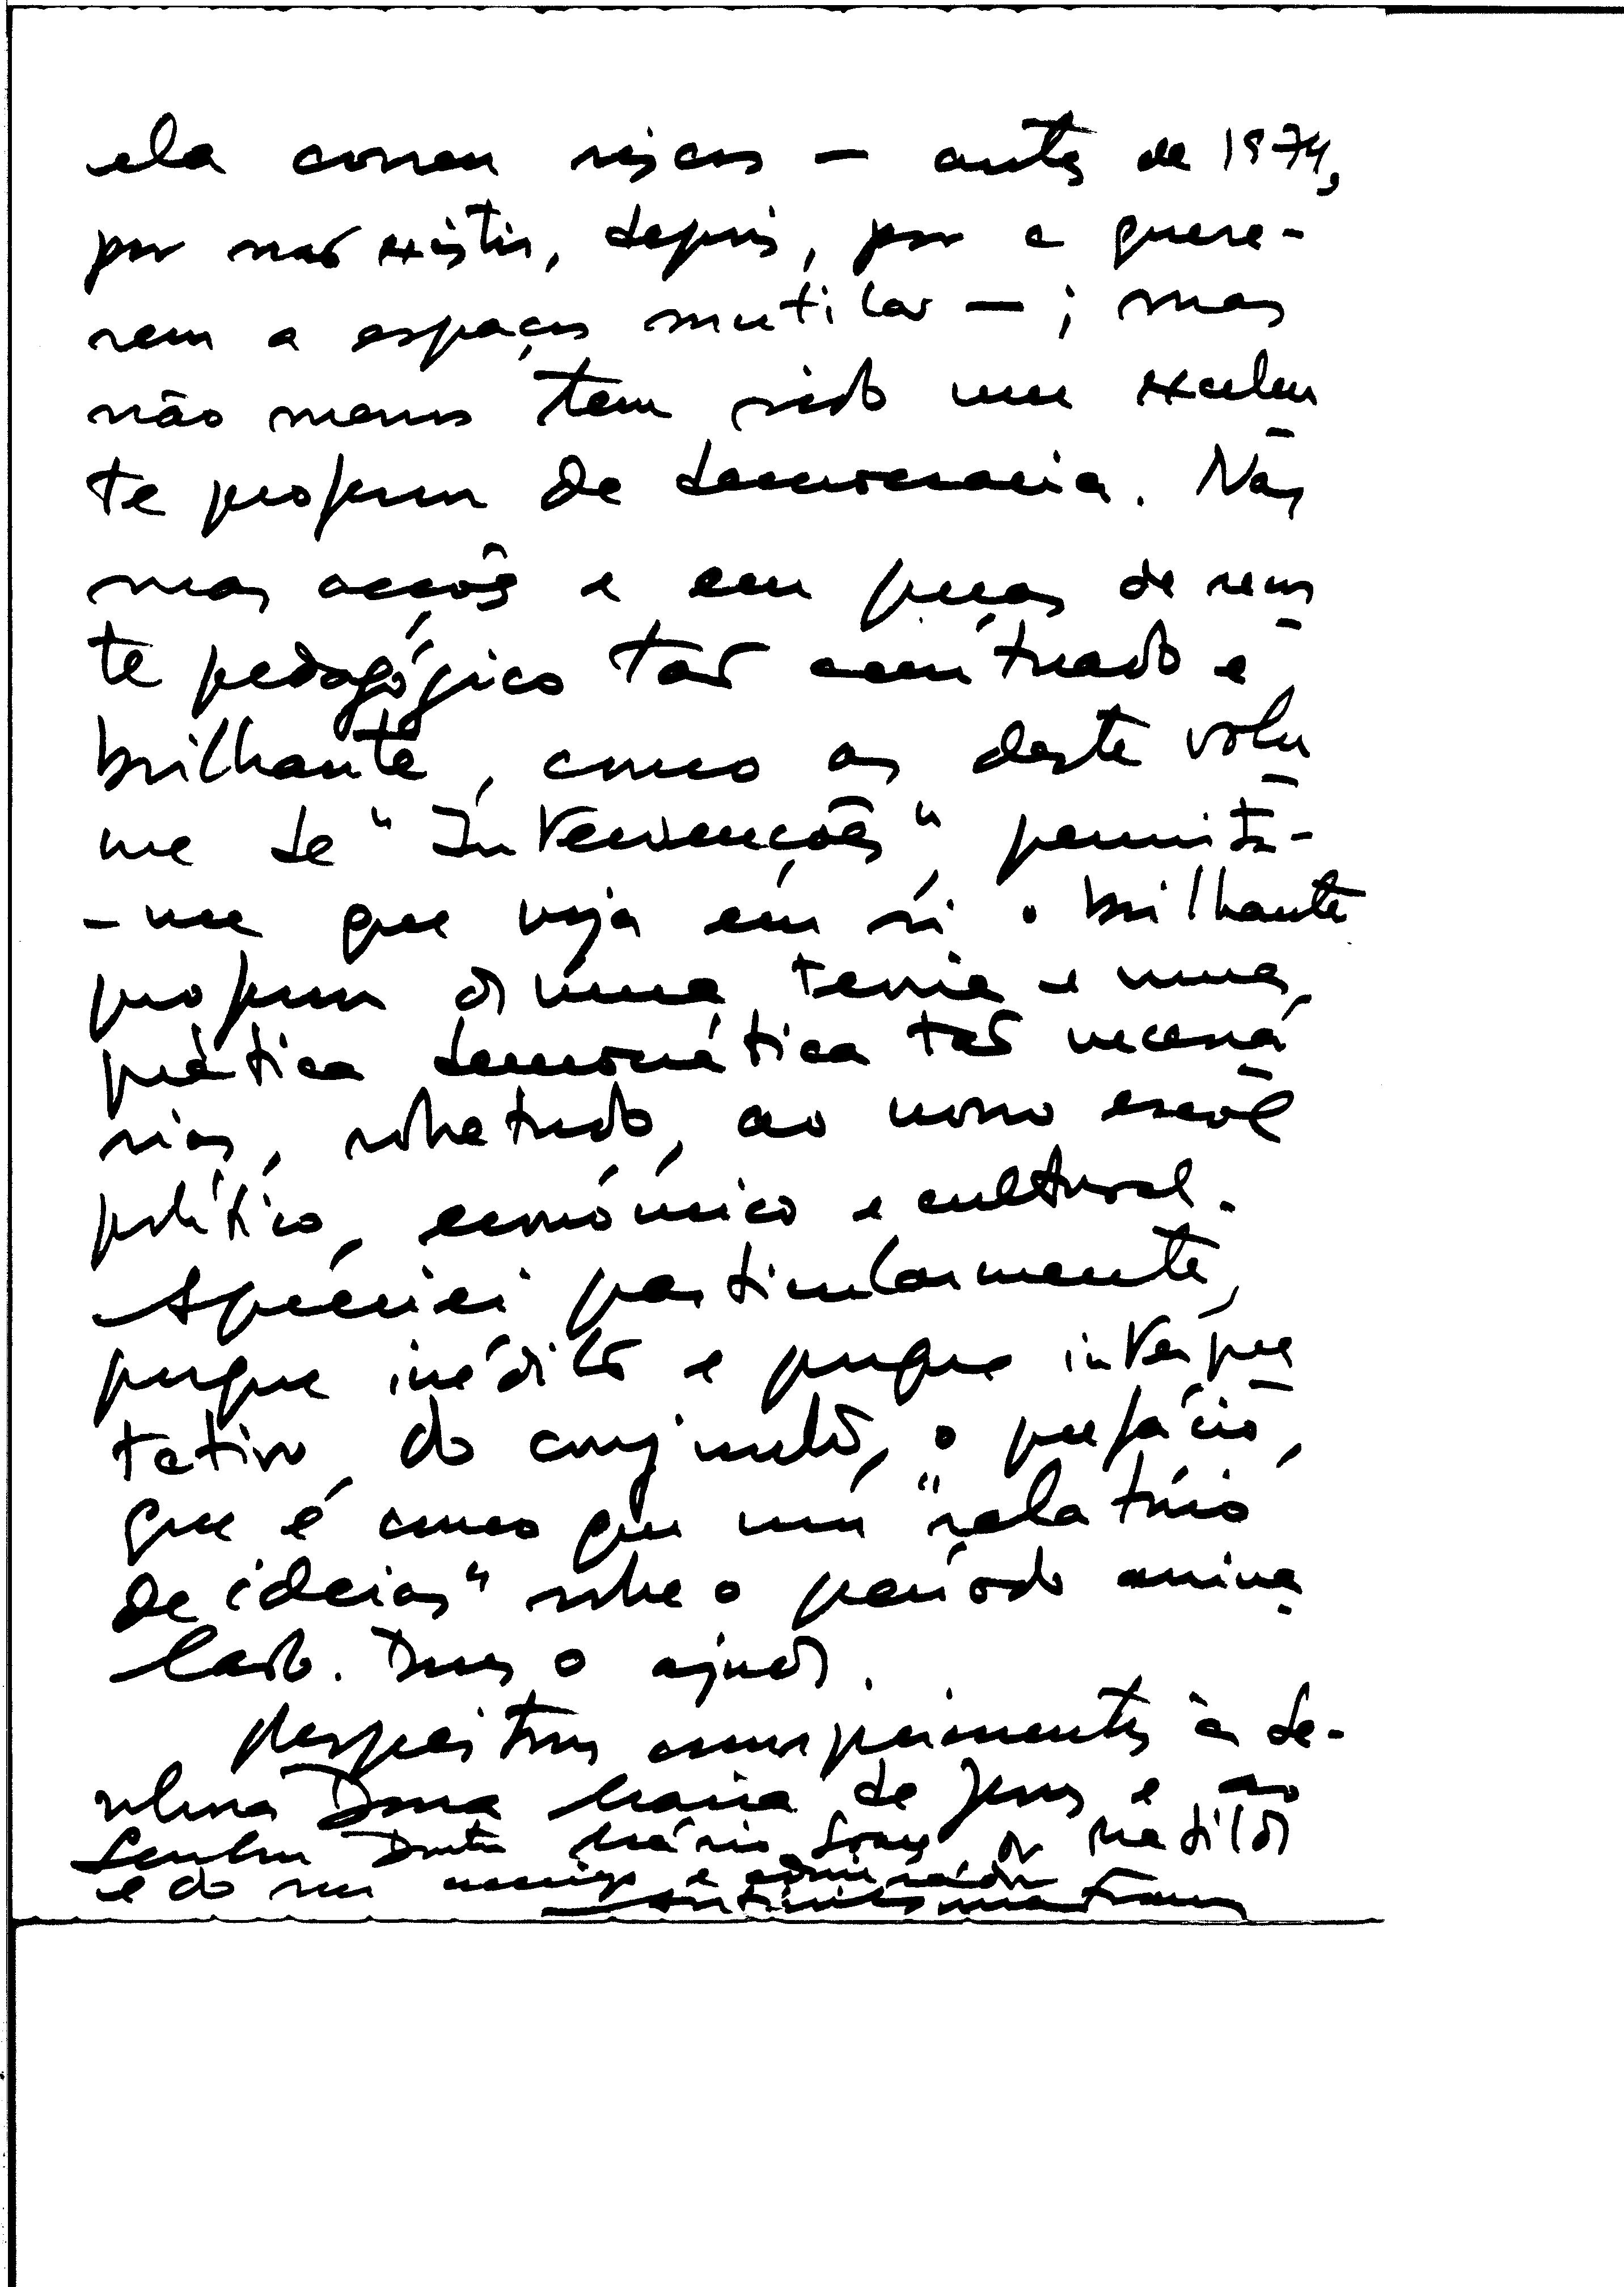 ela correu riscos — antes de 1974,
por não existir, depois, por a quere-
rem a espaços mutilar — ; mas
não menos tem sido um excelen
te professor de democracia. Nas
suas acções e em peças de recor
te pedagógico tão acentuado e
brilhante, como as deste volu
me de "Intervenções", permita-
-me que veja em si o brilhante
professor de uma teoria e uma
prática democrática tão necessá
rias, sobretudo, ao nosso escol
político, económico e cultural.
Apreciei particularmente,
porque inédito e porque interpre
tativo do conjunto, o prefácio,
que é como que um "relatório
de ideias" sobre o período assina
lado. Deus o ajude.
Respeitosos cumprimentos à Se-
nhora Dona Maria de Jesus e ao
Senhor Doutor Mário Soares de Matilde
e do seu amigo e admirador